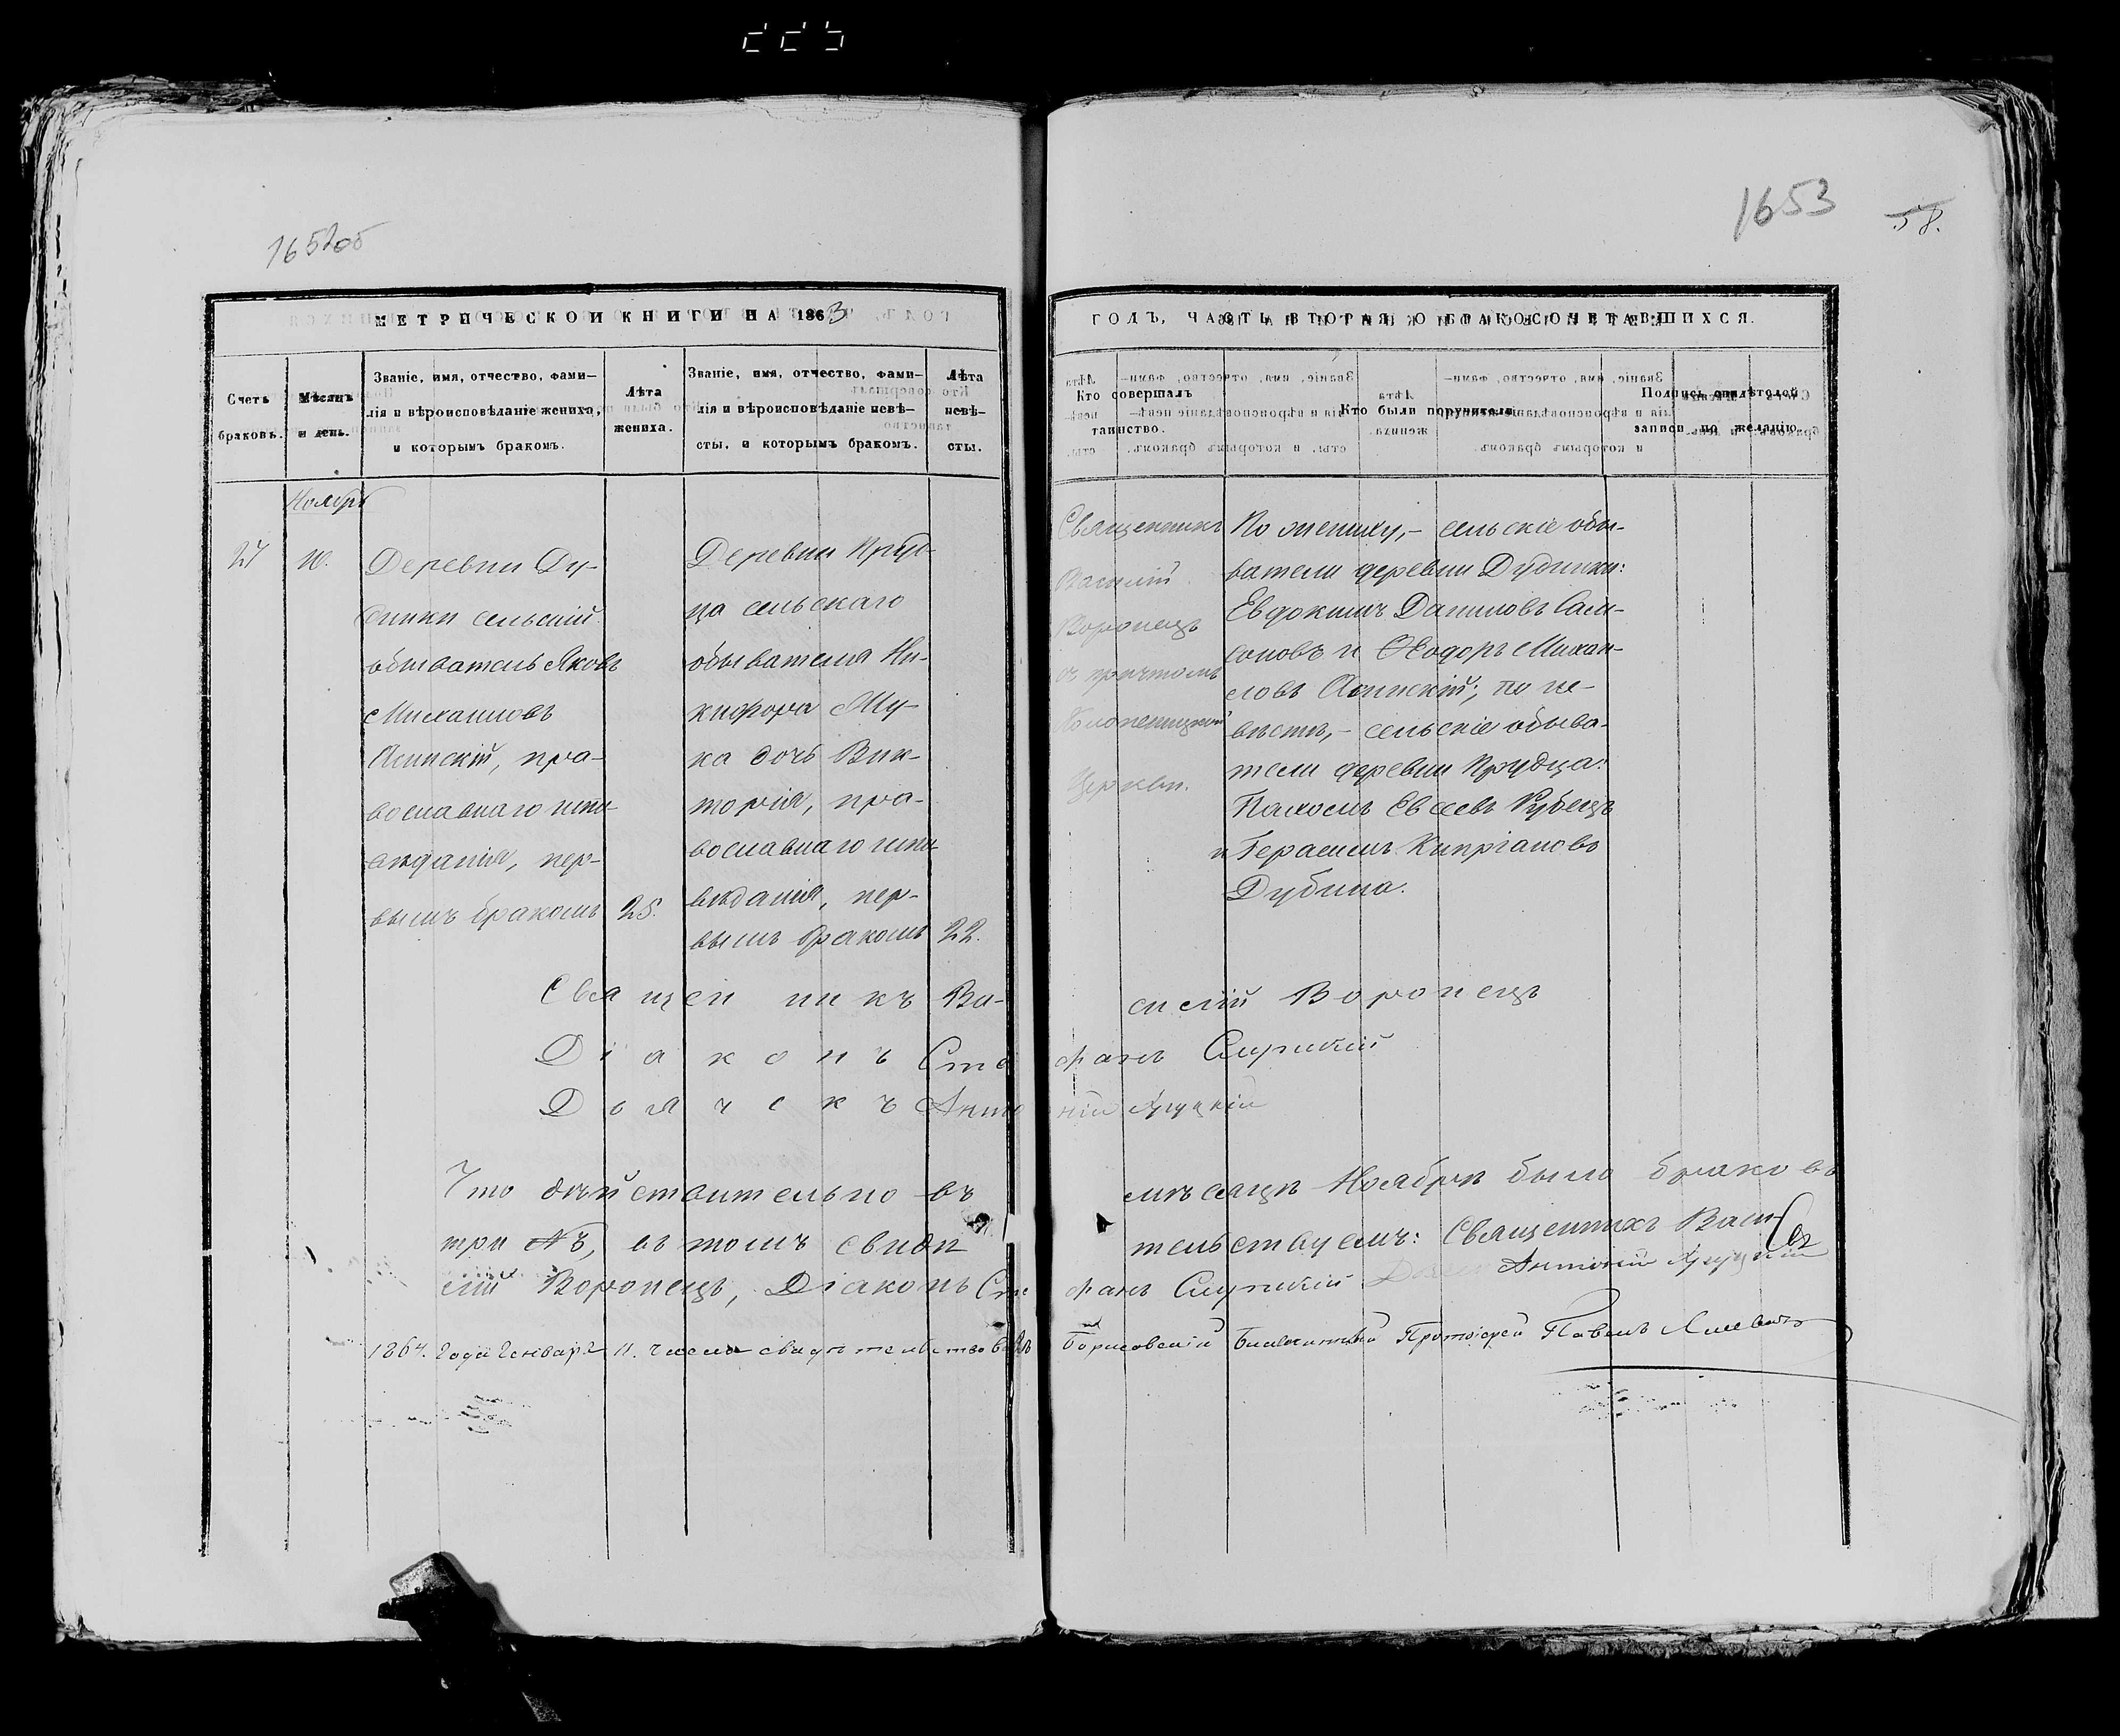 1652об
1653
58.
МЕТРИЧЕСКОЙ КНИГИ НА 1863
ГОДЪ, ЧАСТЬ ВТОРАЯ, О БРАКОСОЧЕТАВШИХСЯ.
Счетъ браковъ.
Мѣсяцъ и день.
Званіе, имя, отчество, фами-
лія и вѣроисповѣданіе жениха,
и которымъ бракомъ.
Лѣта
жениха.
Званіе, имя, отчество, фами-
лія и вѣроисповѣданіе невѣ-
сты, и которымъ бракомъ.
Лѣта
невѣ-
сты.
Кто совершалъ
таинство.
Кто были поручители.
Подпись свидѣтелей
записи по желанію.
Ноябрь
27
10.
Деревни Ду-
бинки сельскій
обыватель Яковъ
Михаиловъ
пра-
вославнаго испо-
вѣданія, пер-
вымъ бракомъ
25.
Деревни Пруд-
ца сельскаго
обывателя Ни-
кифора Му-
ка дочь Вик-
торія, пра-
вославнаго испо-
вѣданія, пер-
вымъ бракомъ
22.
Священникъ
Василій
Воронецъ
съ причтомъ
Холопеницкой
Церкви.
По жениху, – сельскіе обы-
ватели деревни Дубинки:
Евдокимъ Даниловъ Сам-
соновъ и Ѳеодоръ Михаи-
ловъ по не-
вѣстѣ, – сельскіе обыва-
тели деревни Прудца:
Пахомъ Евсеевъ Рубецъ
и Герасимъ Кипріановъ
Дубина.
Священникъ Василій Воронецъ
Діаконъ Стефанъ Слупскій
Дьячекъ Антоній
Что дѣйствительно въ мѣсяцѣ Ноябрѣ было браковъ
три №3, въ томъ свидѣтельствуемъ: Священникъ Васи-
лій Воронецъ, Діаконъ Стефанъ Слупскій Антоній
1864. года Генваря 11. числа свидѣтельствовалъ Борисовскій Благочинный Протоіерей Павелъ